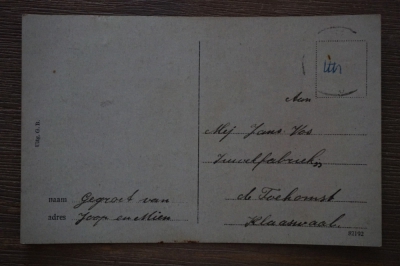 Uitg. O. B.
naam Gegroet van
adres Joop en Mien
Aan
Mej Jans Vos
Zuivelfabriek
de Toekomst
Klaaswaal